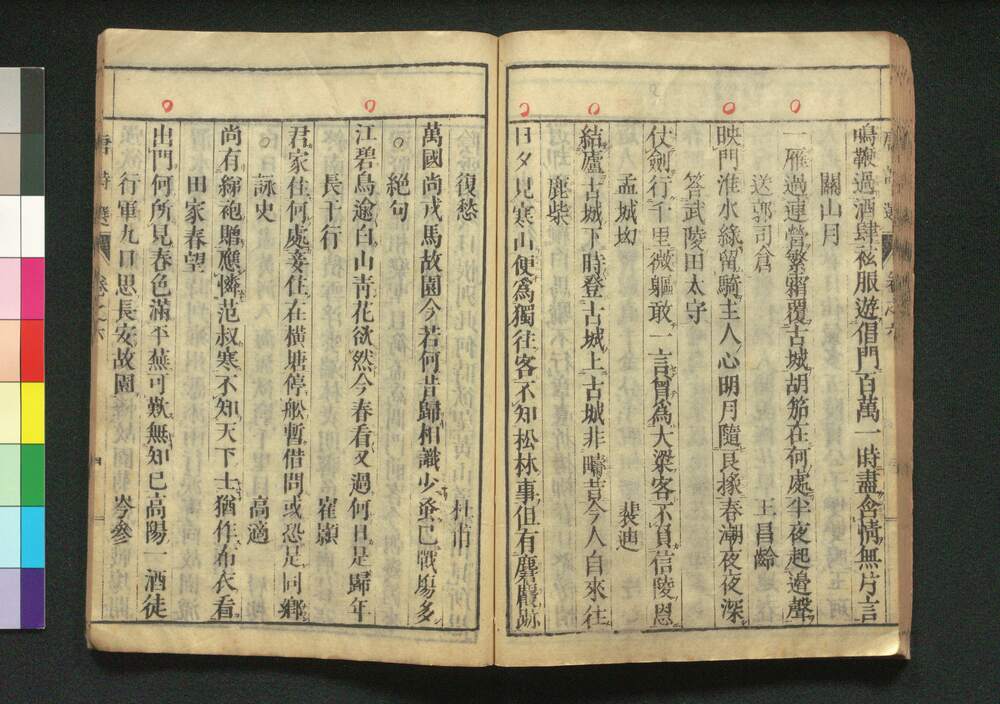 鳴鞭過酒肆袨服遊倡門百萬一時盡含情無片言
關山月
一雁過連營繁霜覆古城胡笳在何處半夜起邊聲
送郭司倉 王昌齡
映門淮水綠留騎主人心明月隨良掾春潮夜夜深
答武陵田太守
仗劍行千里微軀敢一言曾爲大梁客不負信陵恩
孟城坳 裴迪
結廬古城下時登古城上古城非疇昔今人自來往
鹿柴
日夕見寒山便爲獨往客不知松林事但有麏麚跡
復愁 杜甫
萬國尚戎馬故園今若何昔歸相識少蚤已戰塲多
絕句
江碧鳥逾白山青花欲然今春看又過何日是歸年
長干行 崔顥
君家住何處妾住在橫塘停船暫借問或恐是同鄉
詠史 高適
尚有綈袍贈應憐范叔寒不知天下士猶作布衣看
田家春望
出門何所見春色滿平蕪可歎無知己高陽一酒徒
行軍九日思長安故園 岑參
唐詩選 卷之六 四